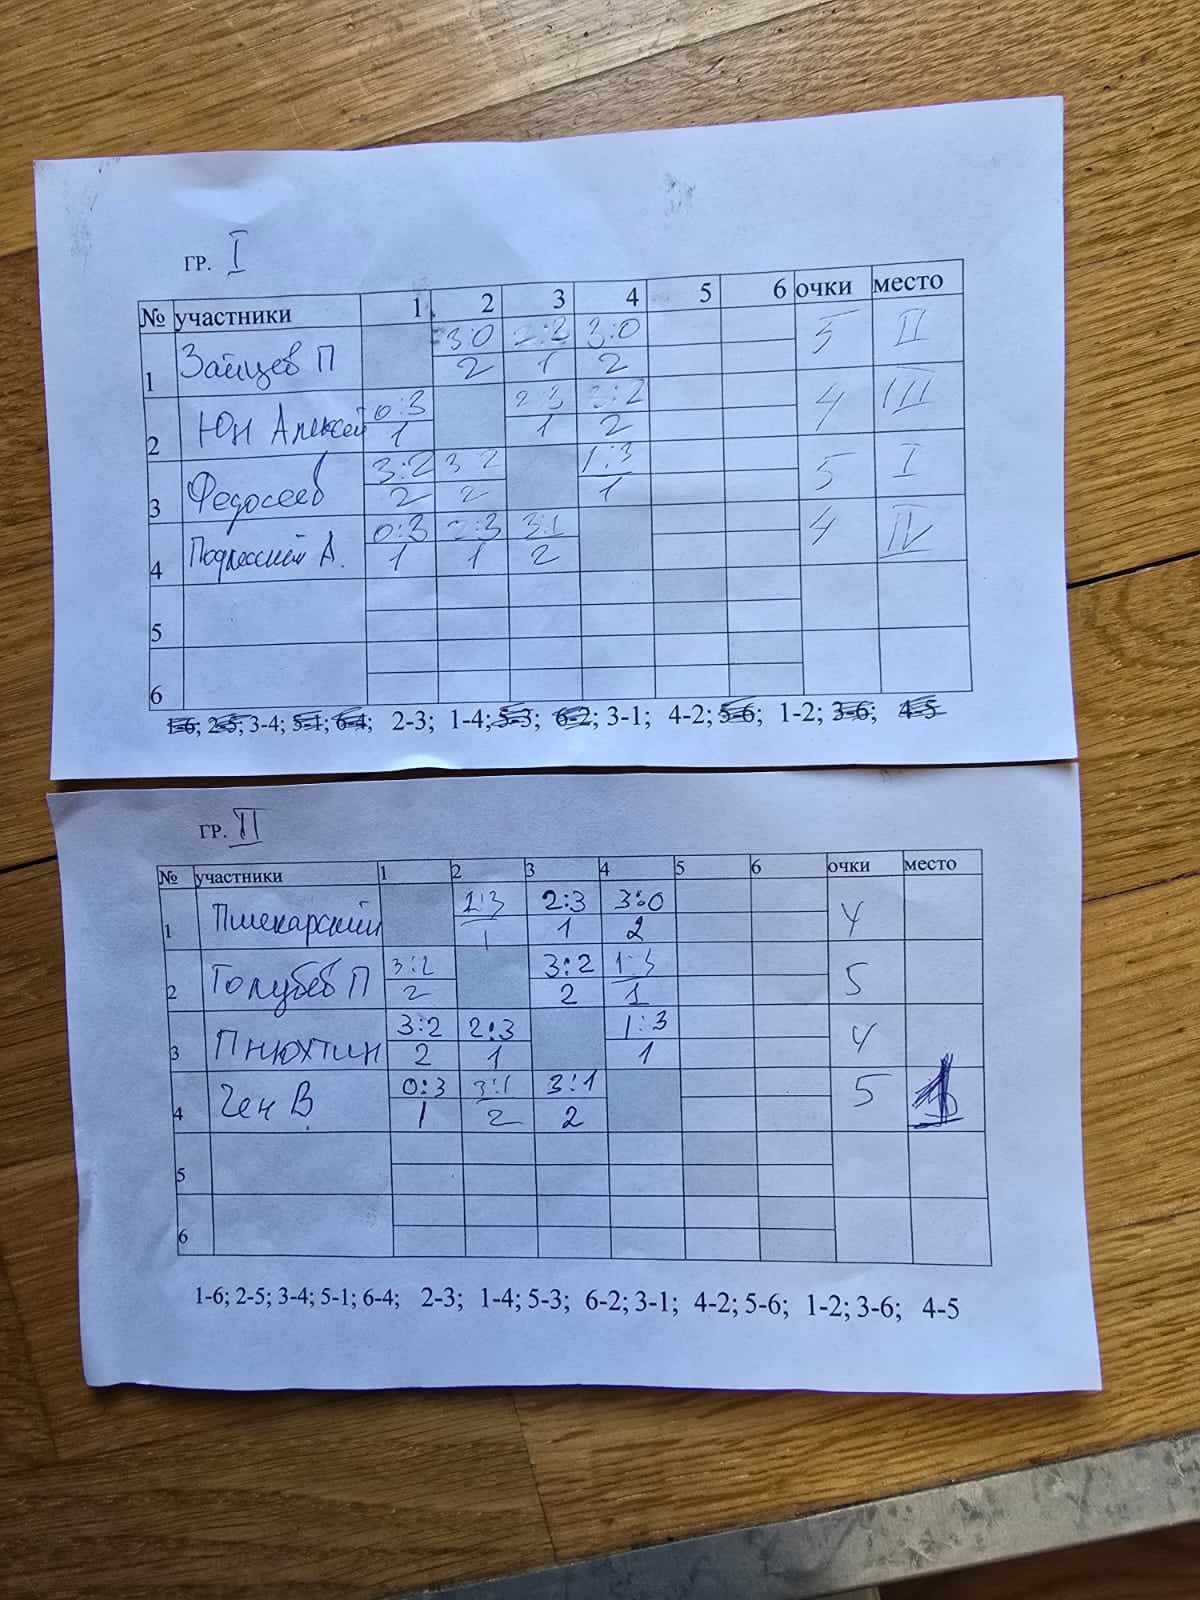 ГР. I
№ участники 1 2 3 4 5 6 очки место
1 Зайцев П 3:0 2:3 3:0 5 II
2 1 2
2 Юн Алексей 0:3 2:3 3:2 4 III
1 1 2
3 Федосеев 3:2 3:2 1:3 5 I
2 2 1
4 А. 0:3 2:3 3:1 4 IV
1 1 2
5
6
1-6; 2-5; 3-4; 5-1; 6-4; 2-3; 1-4; 5-3; 6-2; 3-1; 4-2; 5-6; 1-2; 3-6; 4-5
ГР. II
№ участники 1 2 3 4 5 6 очки место
1 Пшекарский 2:3 3:0 4
1 1 2
2 Голубев П 3:2 3:2 1:3 5
2 2 1
3 Пнюхтин 3:2 2:3 1:3 4
2 1 1
4 Ген В 0:3 3:1 3:1 5 1
1 2 2
5
6
1-6; 2-5; 3-4; 5-1; 6-4; 2-3; 1-4; 5-3; 6-2; 3-1; 4-2; 5-6; 1-2; 3-6; 4-5